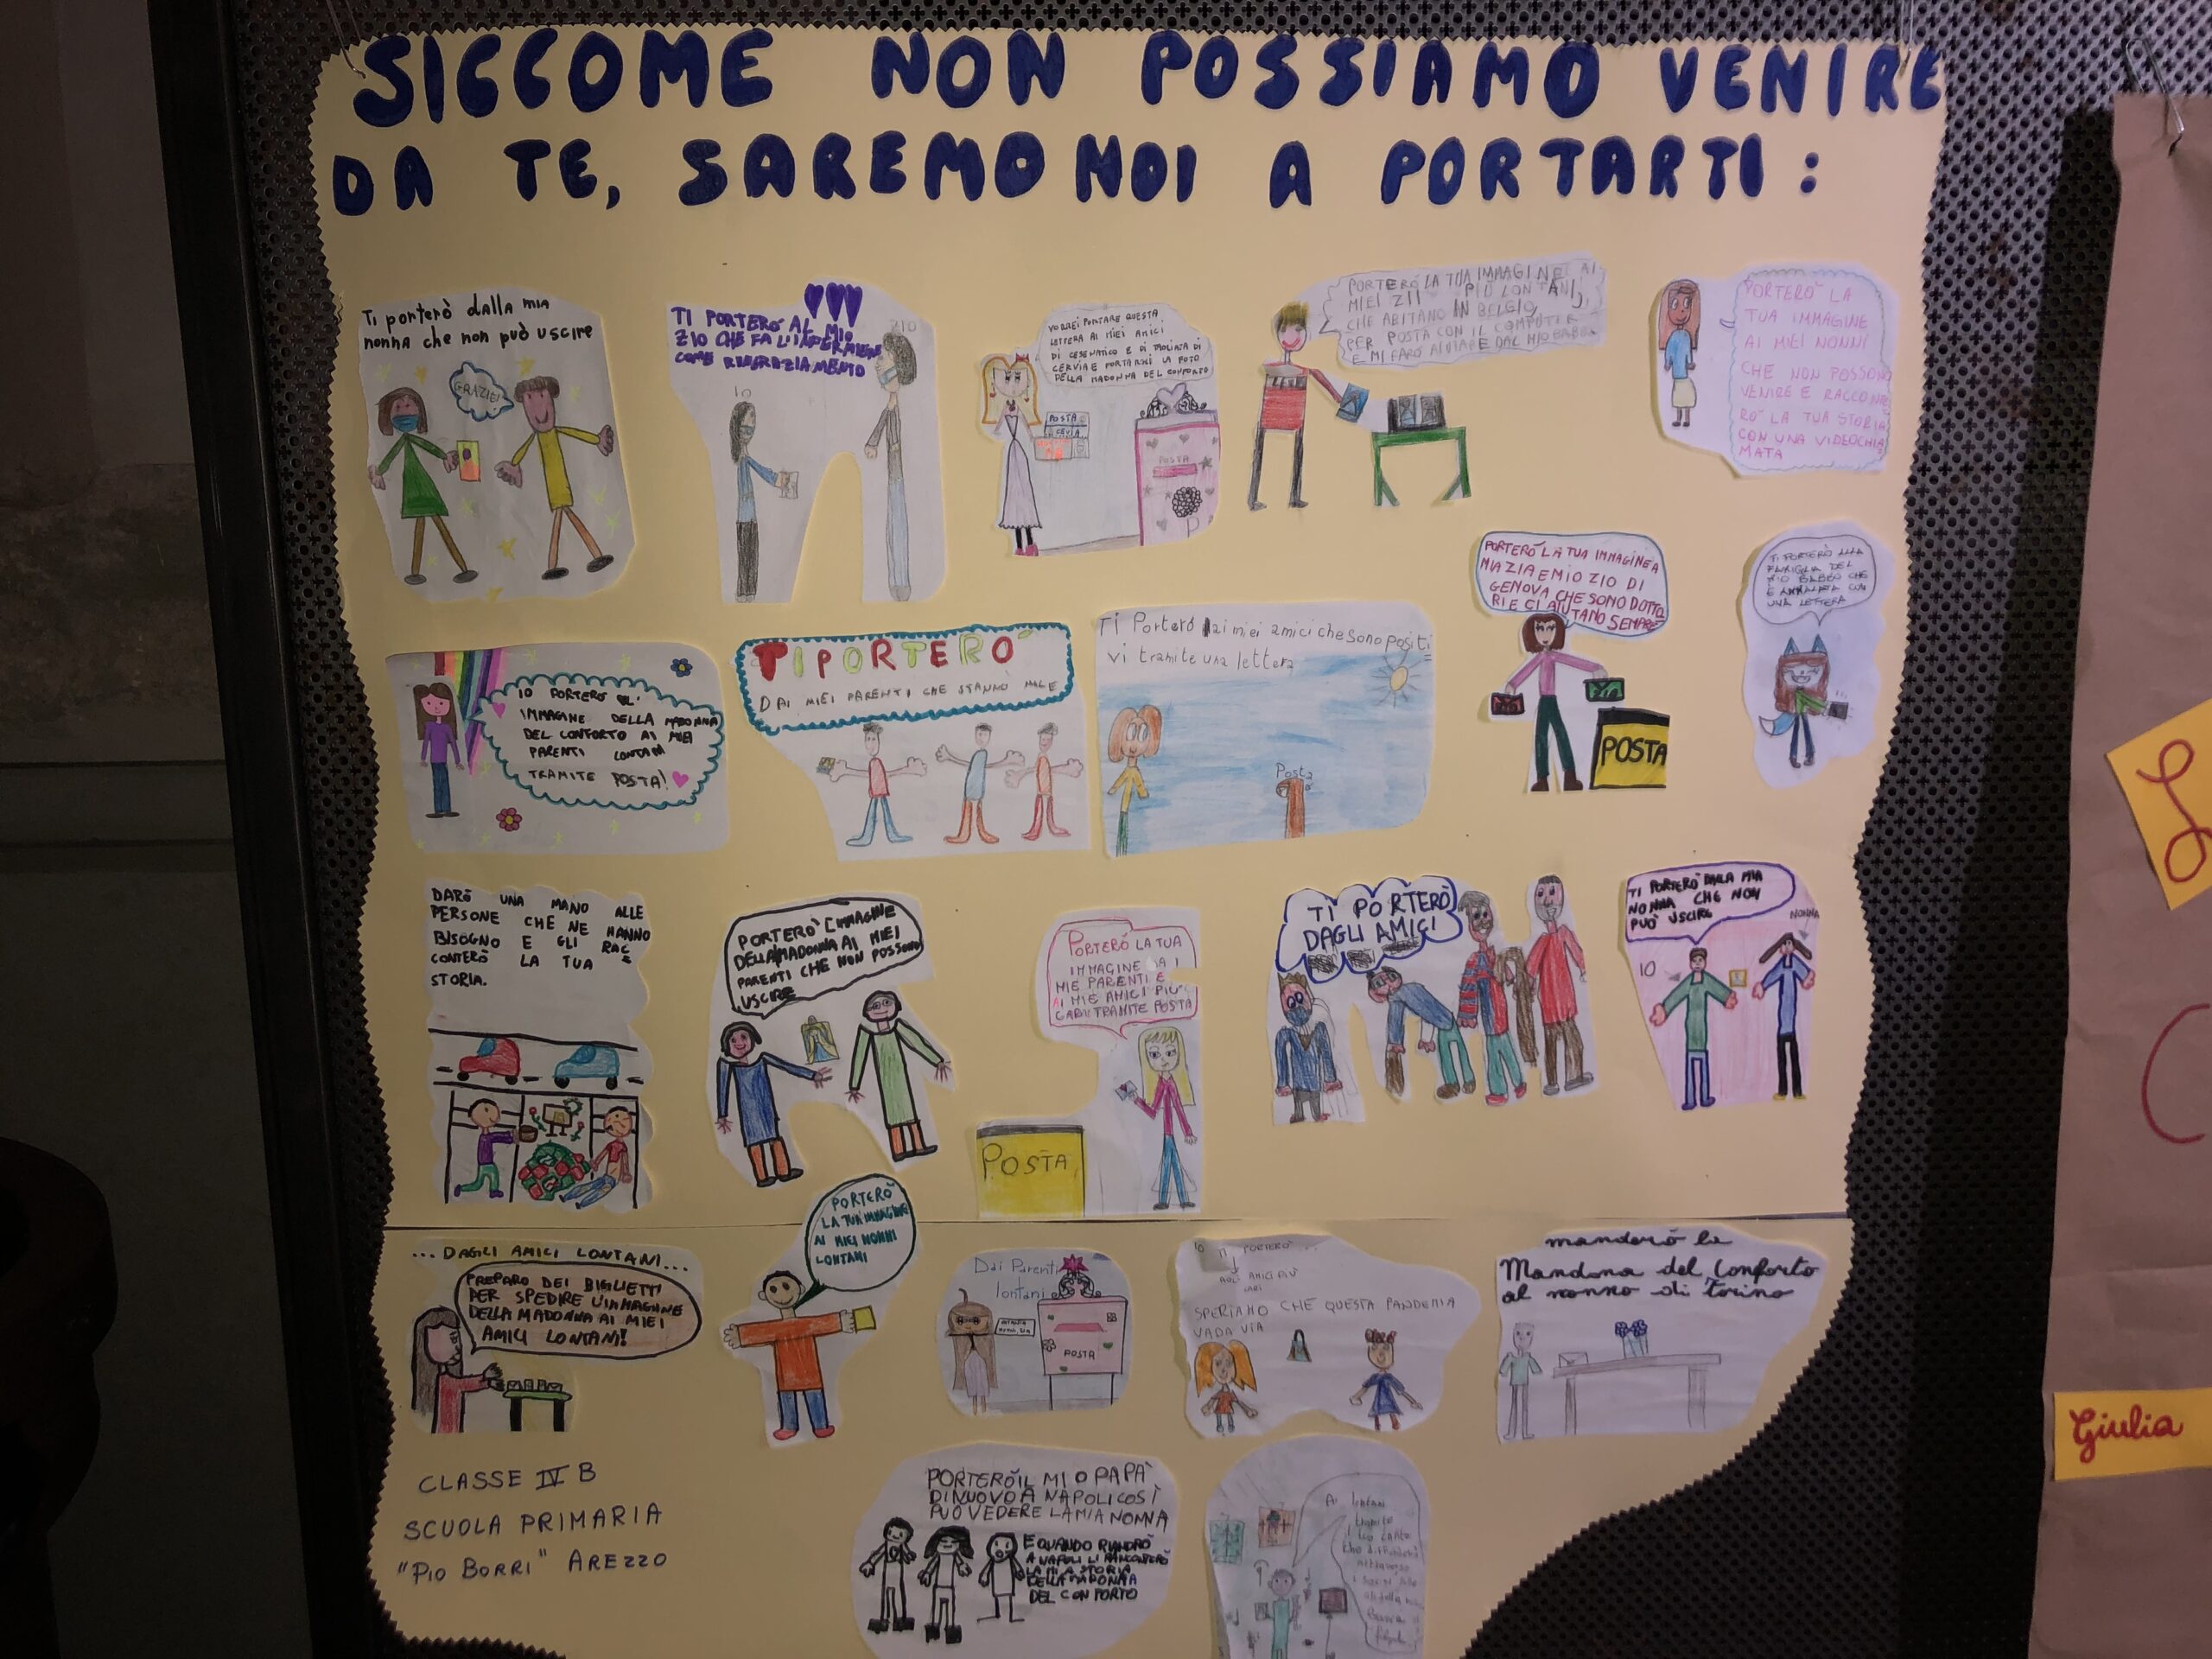 SICCOME NON POSSIAMO VENIRE
DA TE, SAREMO NOI A PORTARTI:
Ti porterò dalla mia
nonna che non può uscire
GRAZIE!
TI PORTERO' AL MIO
ZIO CHE FA L'INFERMIERE
COME RINGRAZIAMENTO
IO
ZIO
VORREI PORTARE QUESTA
LETTERA AI MIEI AMICI
DI CESENATICO E DI TAGLIATA DI
CERVIA E PORTARGLI LA FOTO
DELLA MADONNA DEL CONFORTO
POSTA
CERVIA
POSTA
PORTERÒ LA TUA IMMAGINE AI
MIEI ZII PIÙ LONTANI,
CHE ABITANO IN BELGIO,
PER POSTA CON IL COMPUTER
E MI FARÒ AIUTARE DAL MIO BABBO
PORTERÒ LA
TUA IMMAGINE
AI MIEI NONNI
CHE NON POSSONO
VENIRE E RACCONTE
RÒ LA TUA STORIA
CON UNA VIDEOCHIA
MATA
IO PORTERÒ L'
IMMAGINE DELLA MADONNA
DEL CONFORTO AI MIEI
PARENTI LONTANI
TRAMITE POSTA!
TI PORTERO'
DAI MIEI PARENTI CHE STANNO MALE
Ti Porterò dai miei amici che sono positi
vi tramite una lettera
Posta
PORTERÒ LA TUA IMMAGINE A
MIA ZIA E MIO ZIO DI
GENOVA CHE SONO DOTTO
RI E CI AIUTANO SEMPRE
POSTA
TI PORTERÒ ALLA
FAMIGLIA DEL
MIO BABBO CHE
È AMMALATA CON
UNA LETTERA
DARÒ UNA MANO ALLE
PERSONE CHE NE HANNO
BISOGNO E GLI RAC=
CONTERÒ LA TUA
STORIA.
PORTERÒ L'IMMAGINE
DELLA MADONNA AI MIEI
PARENTI CHE NON POSSONO
USCIRE
PORTERÒ LA TUA
IMMAGINE AI
MIE PARENTI E
AI MIE AMICI PIÙ
CARI TRAMITE POSTA
POSTA
TI PORTERÒ
DAGLI AMICI
TI PORTERÒ DALLA MIA
NONNA CHE NON
PUÒ USCIRE
NONNA
IO
...DAGLI AMICI LONTANI...
PREPARO DEI BIGLIETTI
PER SPEDIRE L'IMMAGINE
DELLA MADONNA AI MIEI
AMICI LONTANI!
PORTERÒ
LA TUA IMMAGINE
AI MIEI NONNI
LONTANI
Dai Parenti
lontani
POSTA
IO TI PORTERÒ...
AGLI AMICI PIÙ
CARI
SPERIAMO CHE QUESTA PANDEMIA
VADA VIA
manderò la
Mandona del Conforto
al nonno di Torino
CLASSE IV B
SCUOLA PRIMARIA
"PIO BORRI" AREZZO
PORTERÒ IL MIO PAPÀ
DI NUOVO A NAPOLI COSÌ
PUÒ VEDERE LA MIA NONNA
E QUANDO RIANDRÒ
A NAPOLI LI RACCONTERÒ
LA STORIA
DELLA MADONNA
DEL CONFORTO
Ai lontani
tramite
attraverso
Giulia